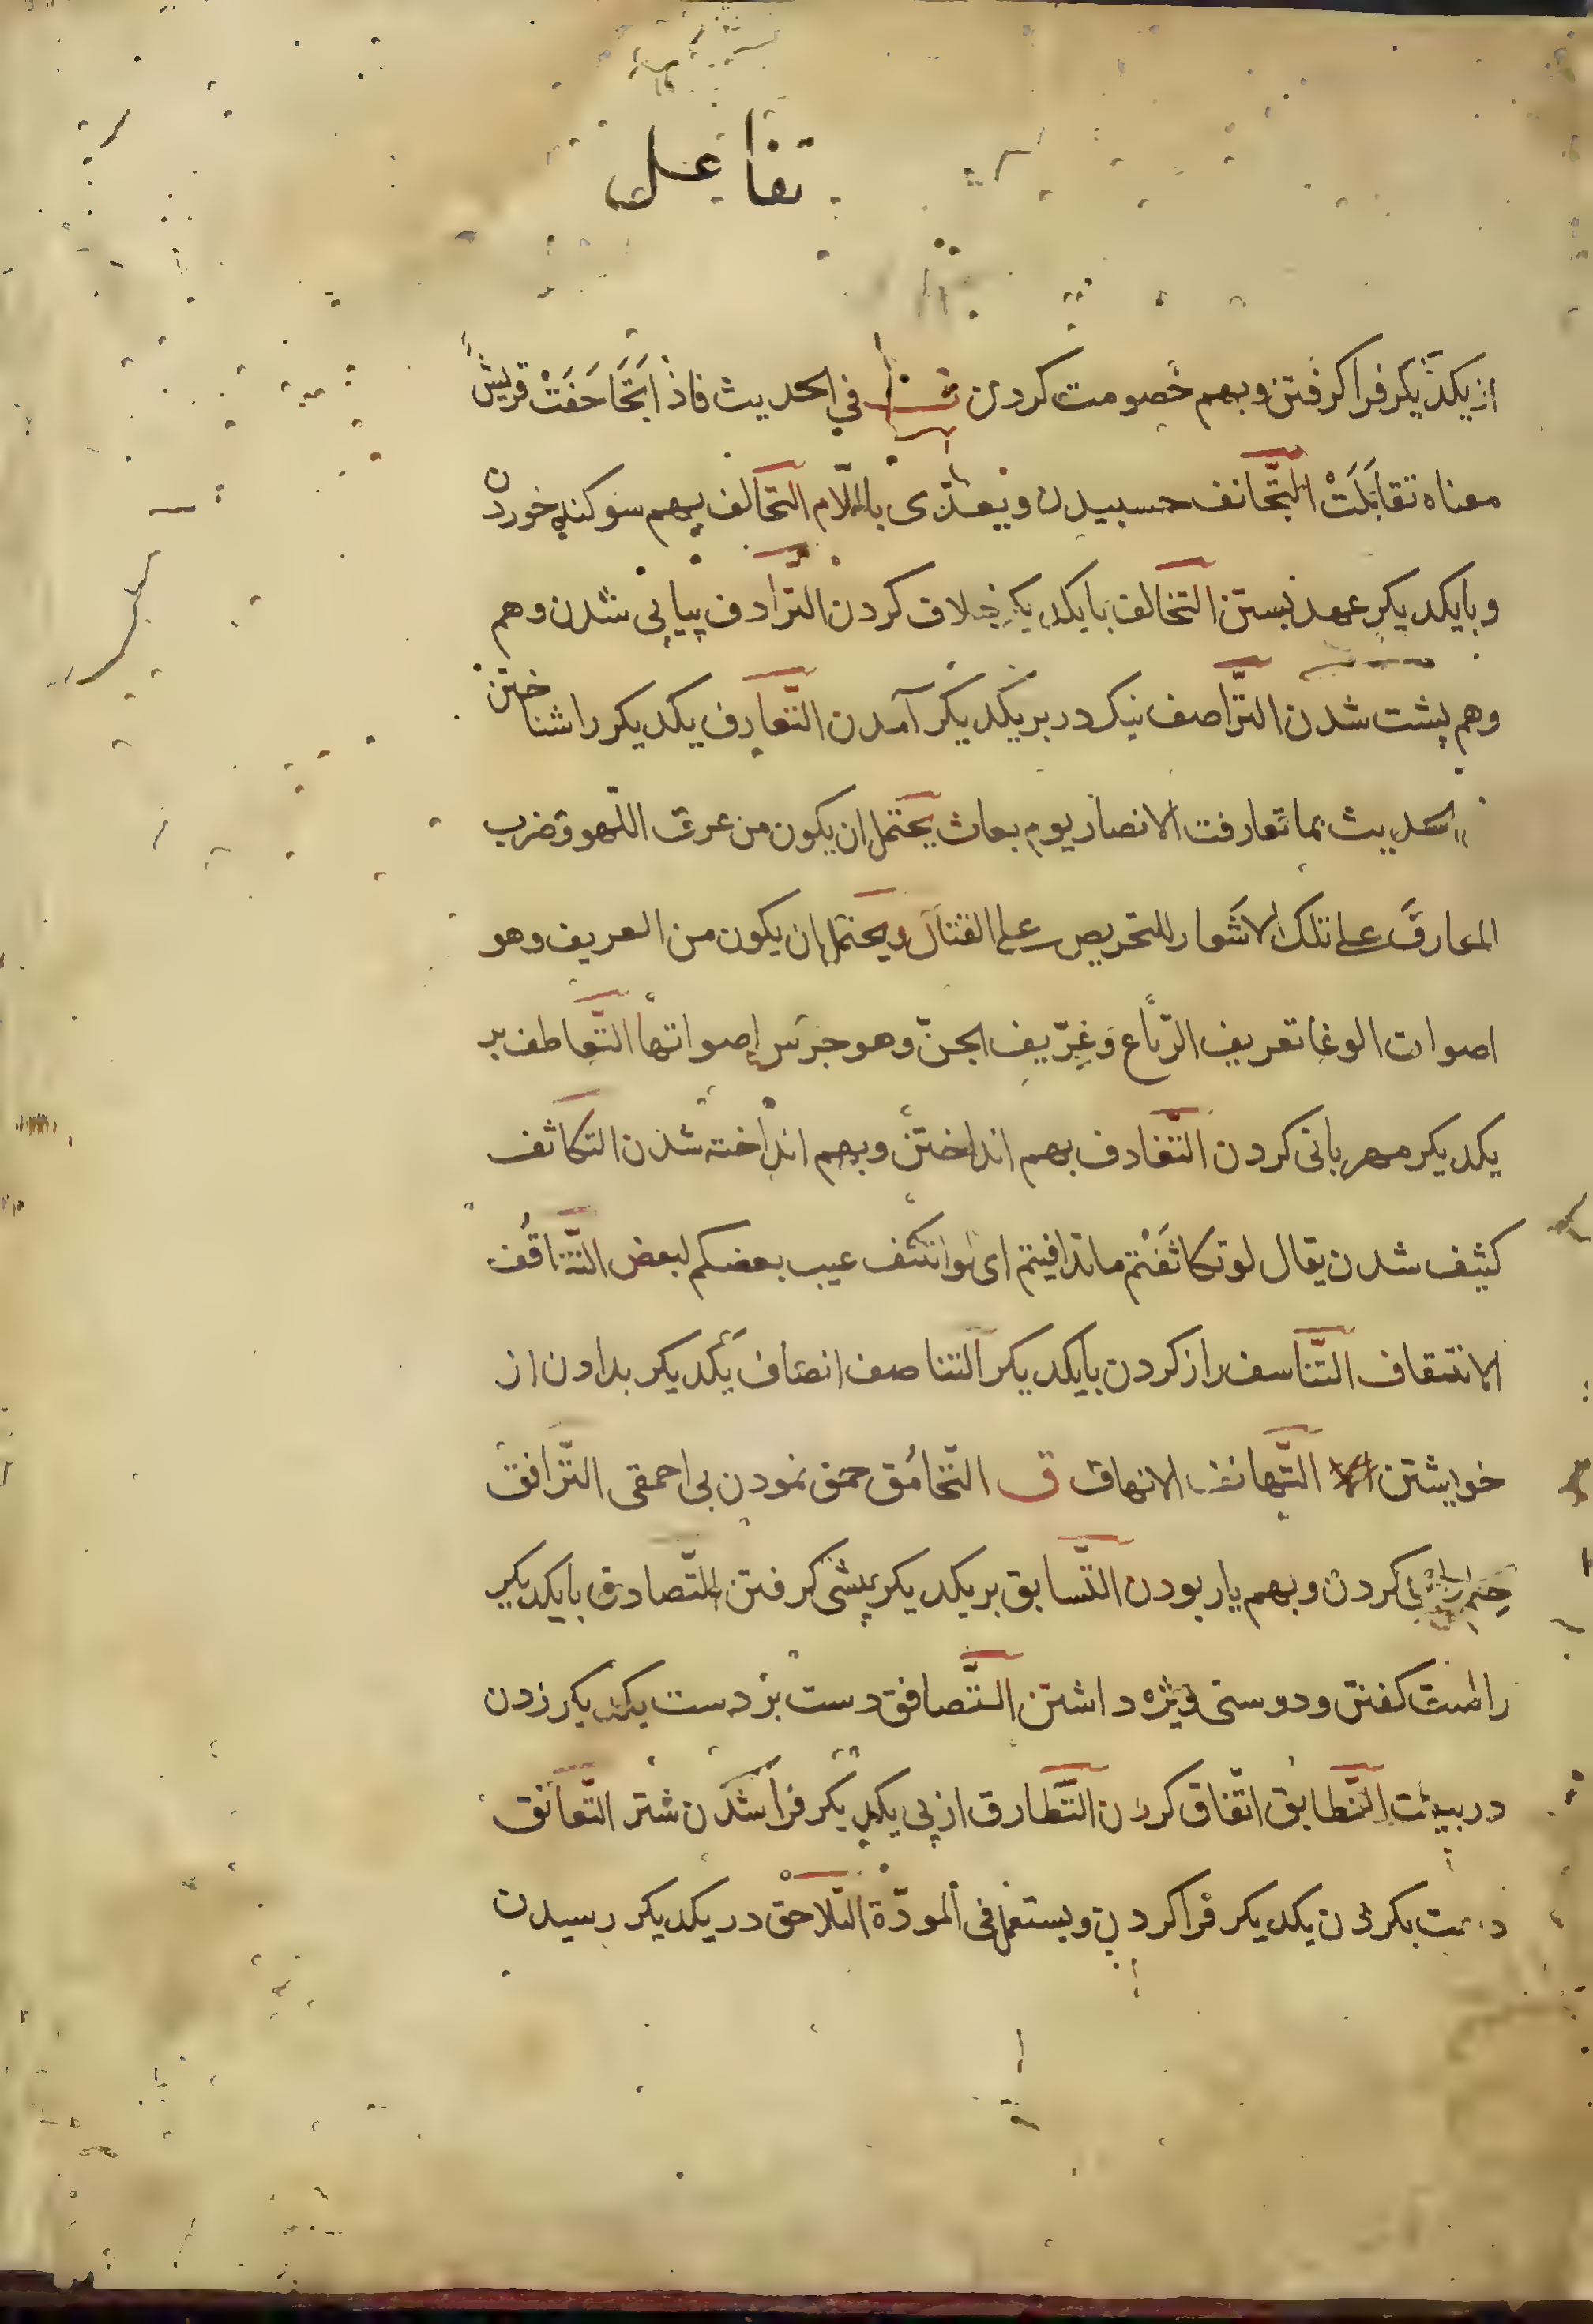 تفاعل
از یکدیکر فرا کرفتن وبهم خصومت کردن ف في الحدیث فاذا تَجَاحَفَتْ قریش
معناه تقابَلَتْ التَّجانف حسبیدن ویعدّی باللّام التّحالف بهم سوکند خوردن
وبایکدیکر عهد بستن التّخالف بایکدیکر خلاف کردن التّرادف پیاپی شدن وهم
وهم پشت شدن التّراصف نیک در بر یکدیکر آمدن التّعارف یکدیکر را شناختن
الحدیث بما تعارفت الانصار یوم بعاث یحتمل ان یکون من عزف اللّهو وضرب
المعازف علی تلک الاشعار للتحریص علی القتال ویحتمل ان یکون من العزیف وهو
اصوات الوغا تعزیف الریاح وعزیف الجنّ وهو جرس اصواتها التّعاطف بر
یکدیکر مهربانی کردن التّقاذف بهم انداختن وبهم انداخته شدن التکاثف
کثیف شدن یقال لو تکاشَفْتم ما تدافنتم ای لو انکشف عیب بعضکم لبعض التَّناقُف
الانتقاف التّناسف راز کردن بایکدیکر التناصف انصاف یکدیکر بدادن از
خویشتن التّهانف الانهاف ق التّحامُق حمق نمودن بی احمقی التّرافق
کردن وبهم یار بودن التّسابق بر یکدیکر پیشی کرفتن التّصادق بایکدیکر
راست کفتن ودوستی ویژه داشتن التّصافق دست بر دست یکدیکر زدن
در بیعت التّطابق اتّفاق کردن التّطارق از پی یکدیکر فرا شدن شتر التّعانق
دست بکردن یکدیکر فرا کردن ویستعمل فی المودّة التّلاحق در یکدیکر رسیدن